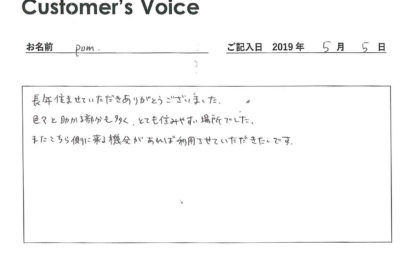 Customer's Voice
お名前 pom. ご記入日 2019 年 5 月 5 日
長年住ませていただきありがとうございました。
色々と助かる部分も多く、とても住みやすい場所でした。
またこちら側に来る機会があれば利用させていただきたいです。